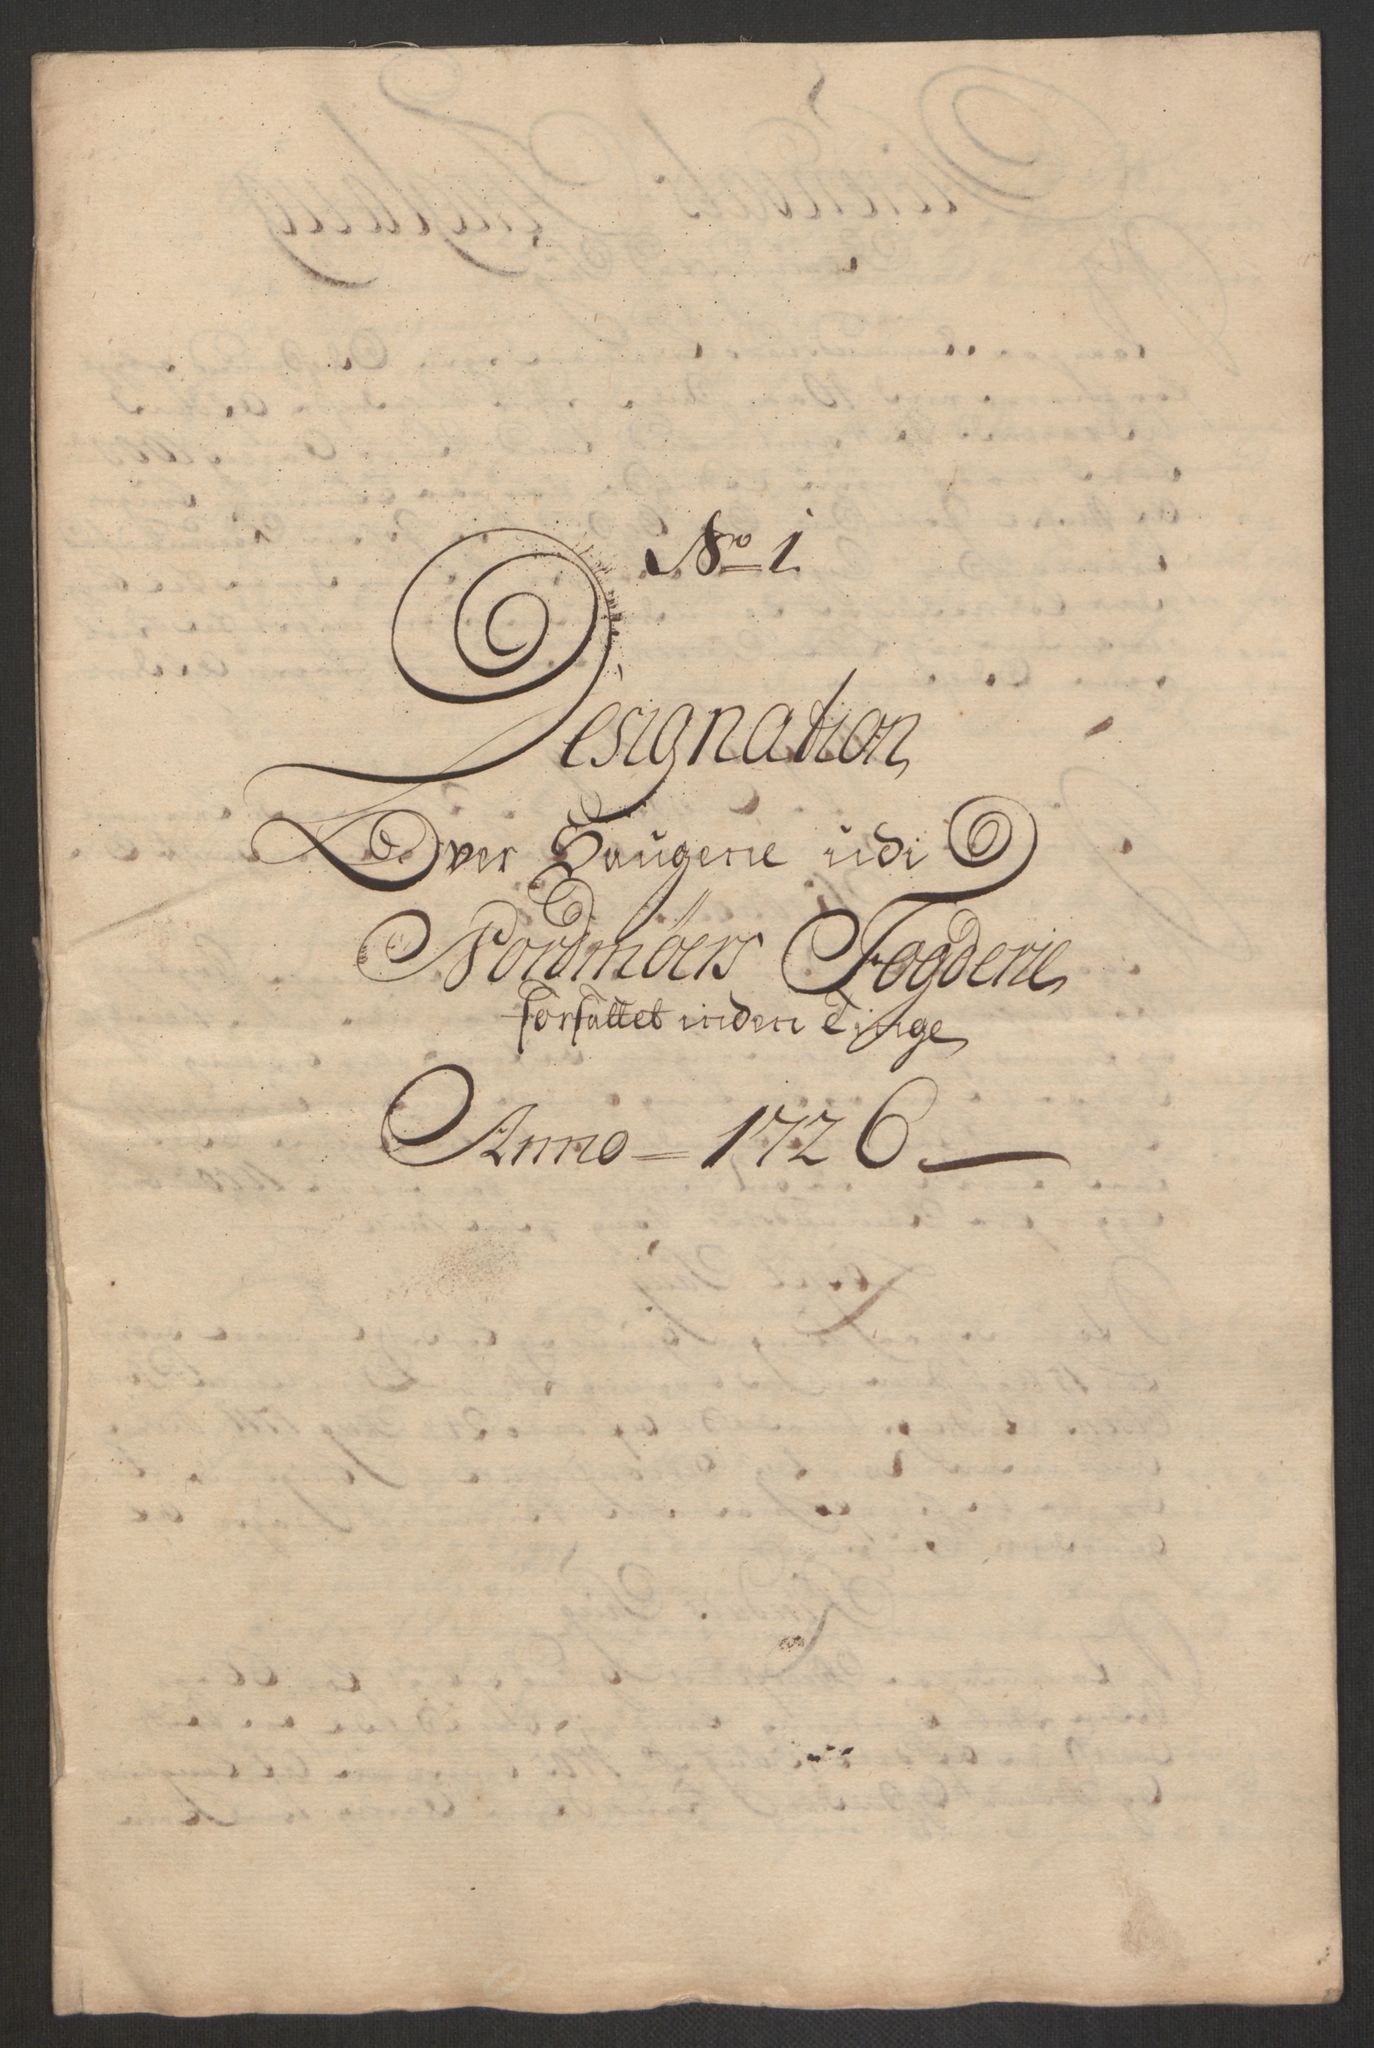 No 1
Designation
Over Saugene udi
Nordmøers Fogderie
forfattet inden Tinge
Anno = 1726